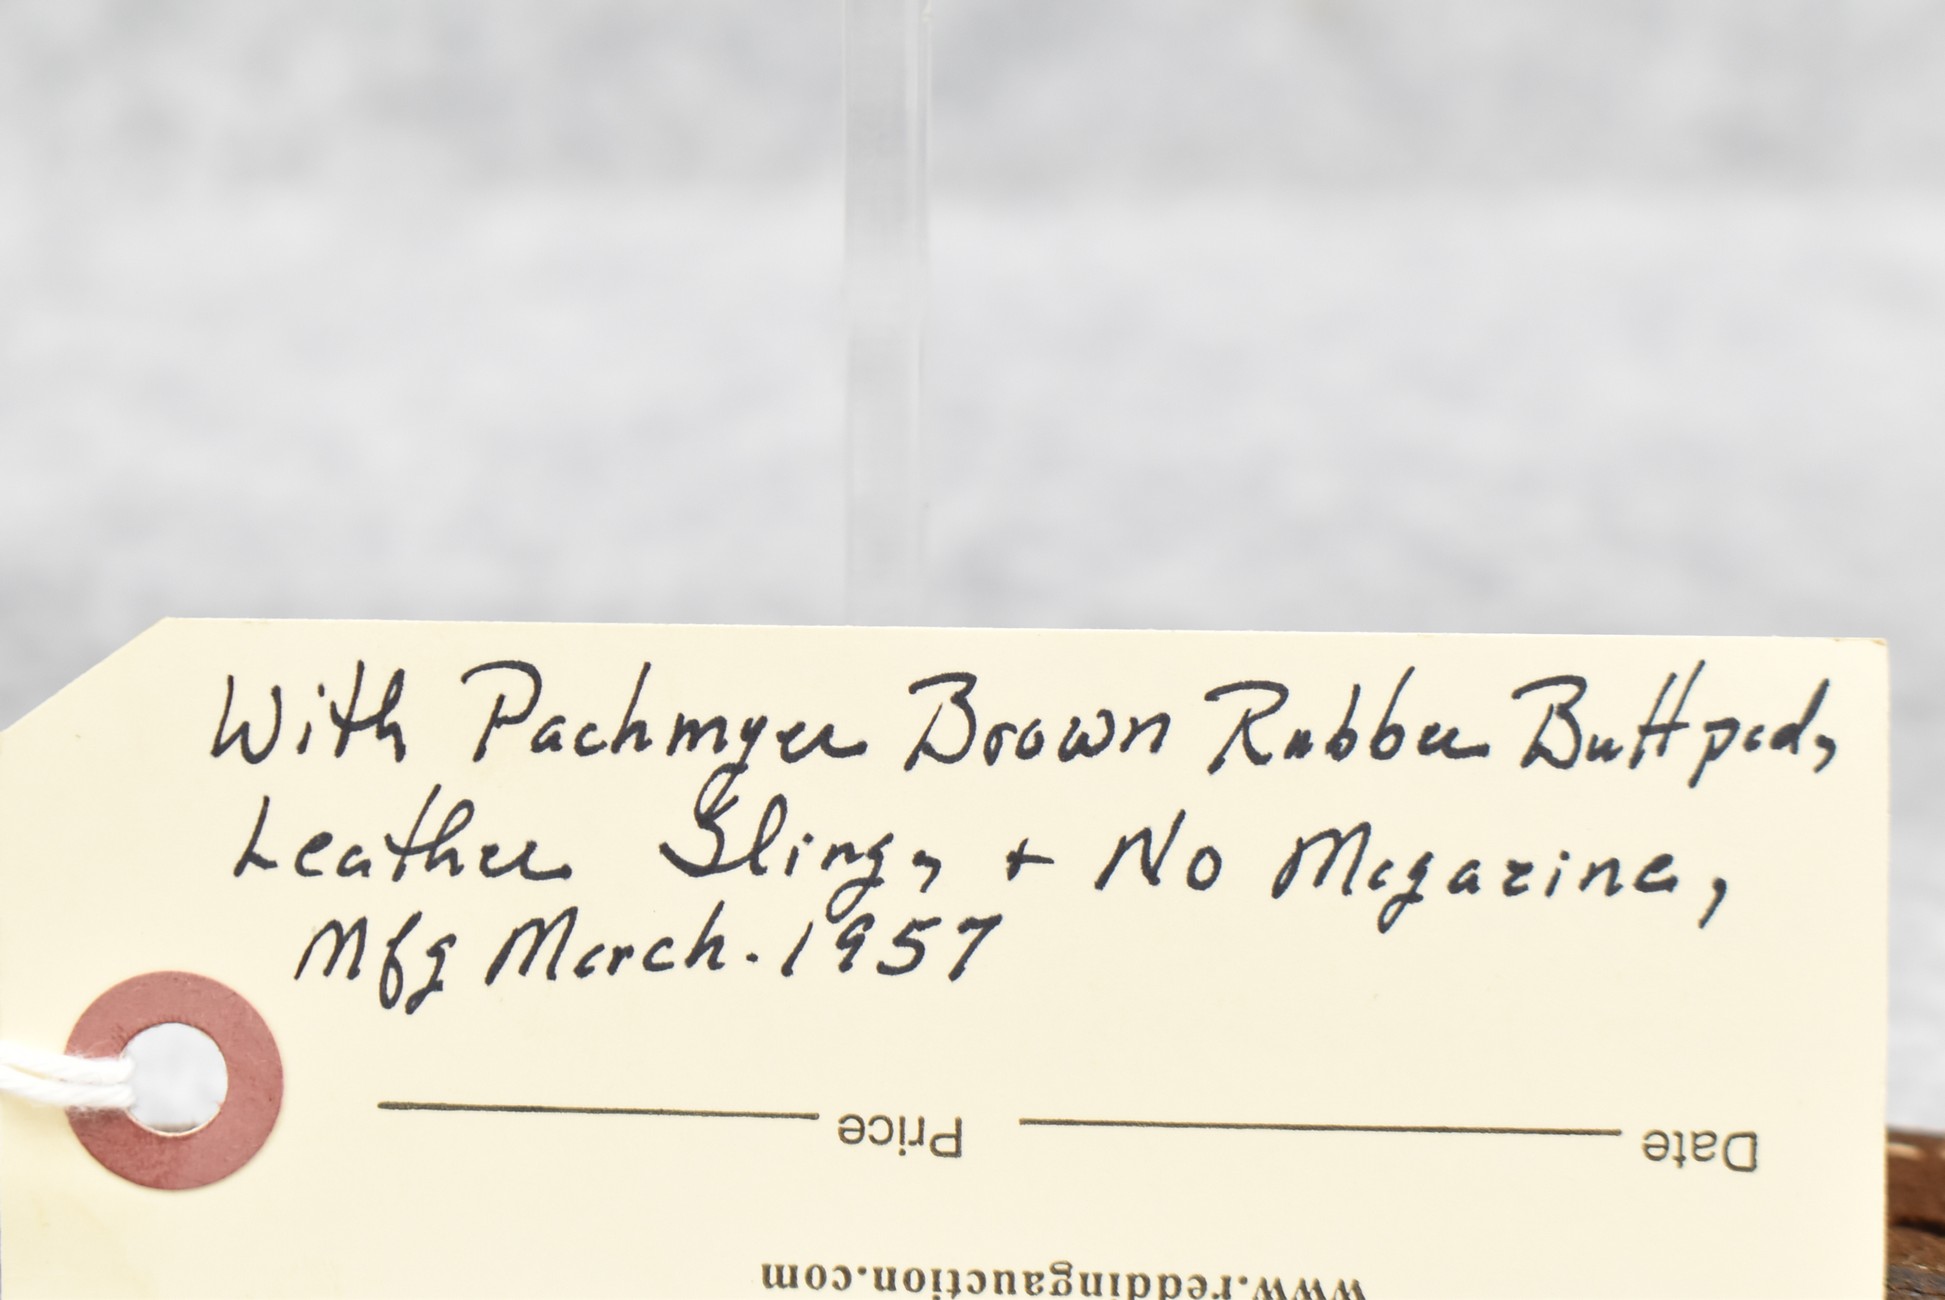 With Pachmyer Brown Rubber Buttpad,
Leather Sling, + No Magazine,
Mfg March. 1957
Date Price
www.reddingauction.com